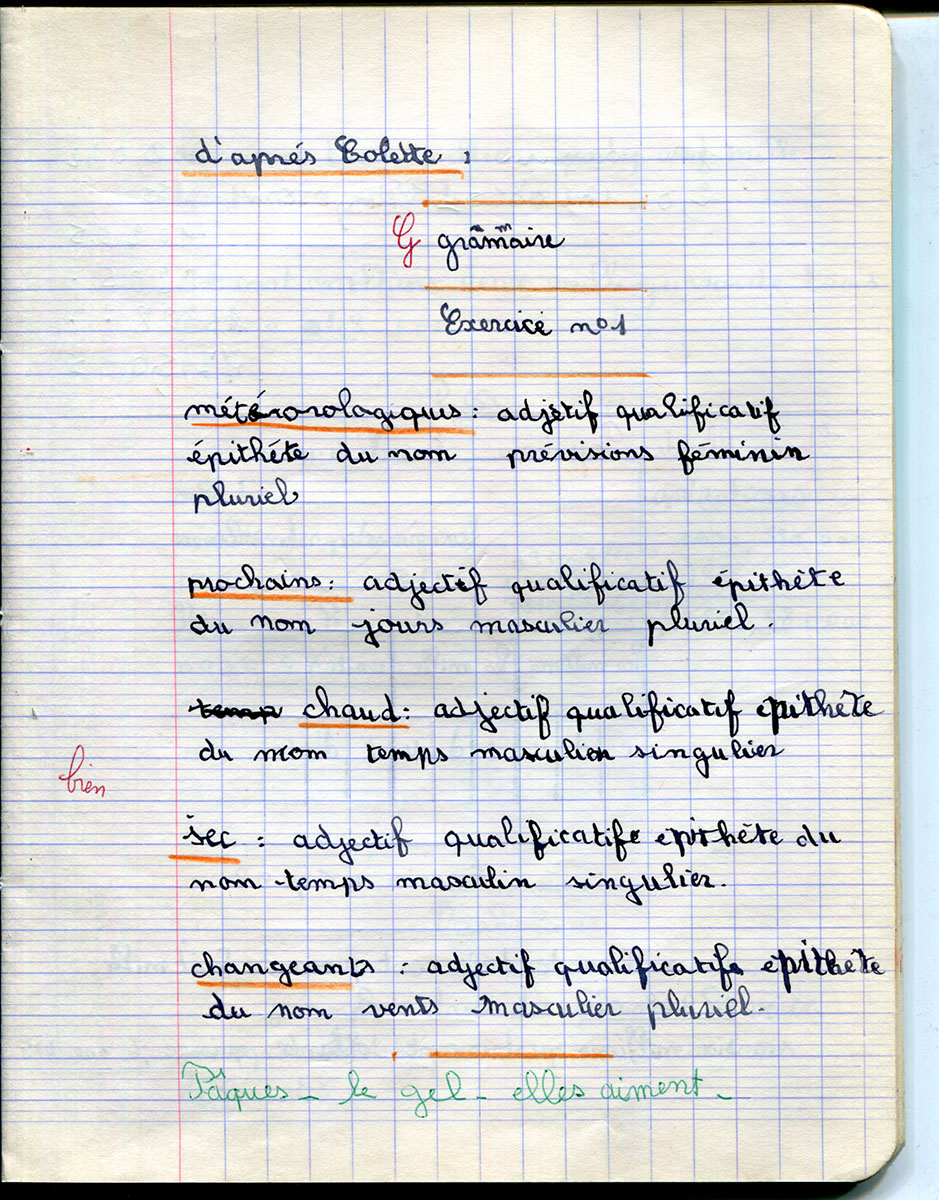 d'aprés Colette :
G grammaire
Exercice nº1
métérorologiques : adjetif qualificatif
épithéte du nom prévisions féminin
pluriel
prochains : adjectif qualificatif épithète
du nom jours masculier pluriel.
temp chaud : adjectif qualificatif epithète
du nom temps masculien singulier
bien
sec : adjectif qualificatife epithète du
nom temps masculin singulier.
changeants : adjectif qualificatifs epithète
du nom vents masculier pluriel.
Pâques - le gel - elles aiment -